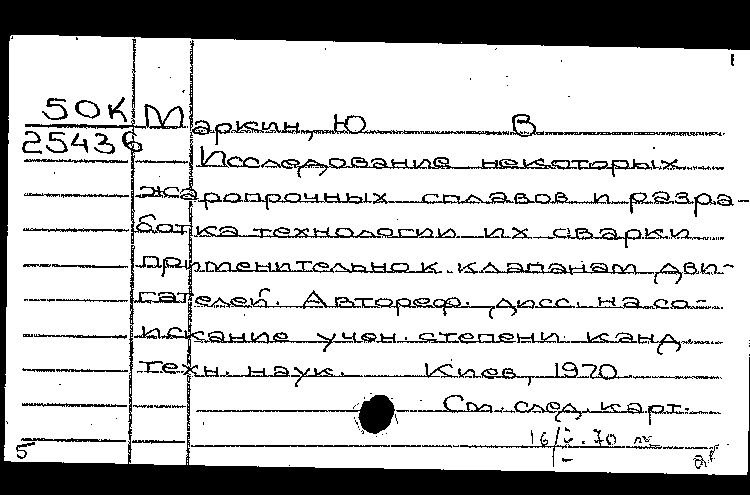 1
50К Маркин, Ю В
25436
Исследование некоторых
жаропрочных сплавов и разра-
ботка технологии их сварки
применительно к клапанам дви-
гателей. Автореф. дисс. на со-
искание учен. степени канд
техн. наук. Киев, 1970
См. след. карт.
16/V.70
5